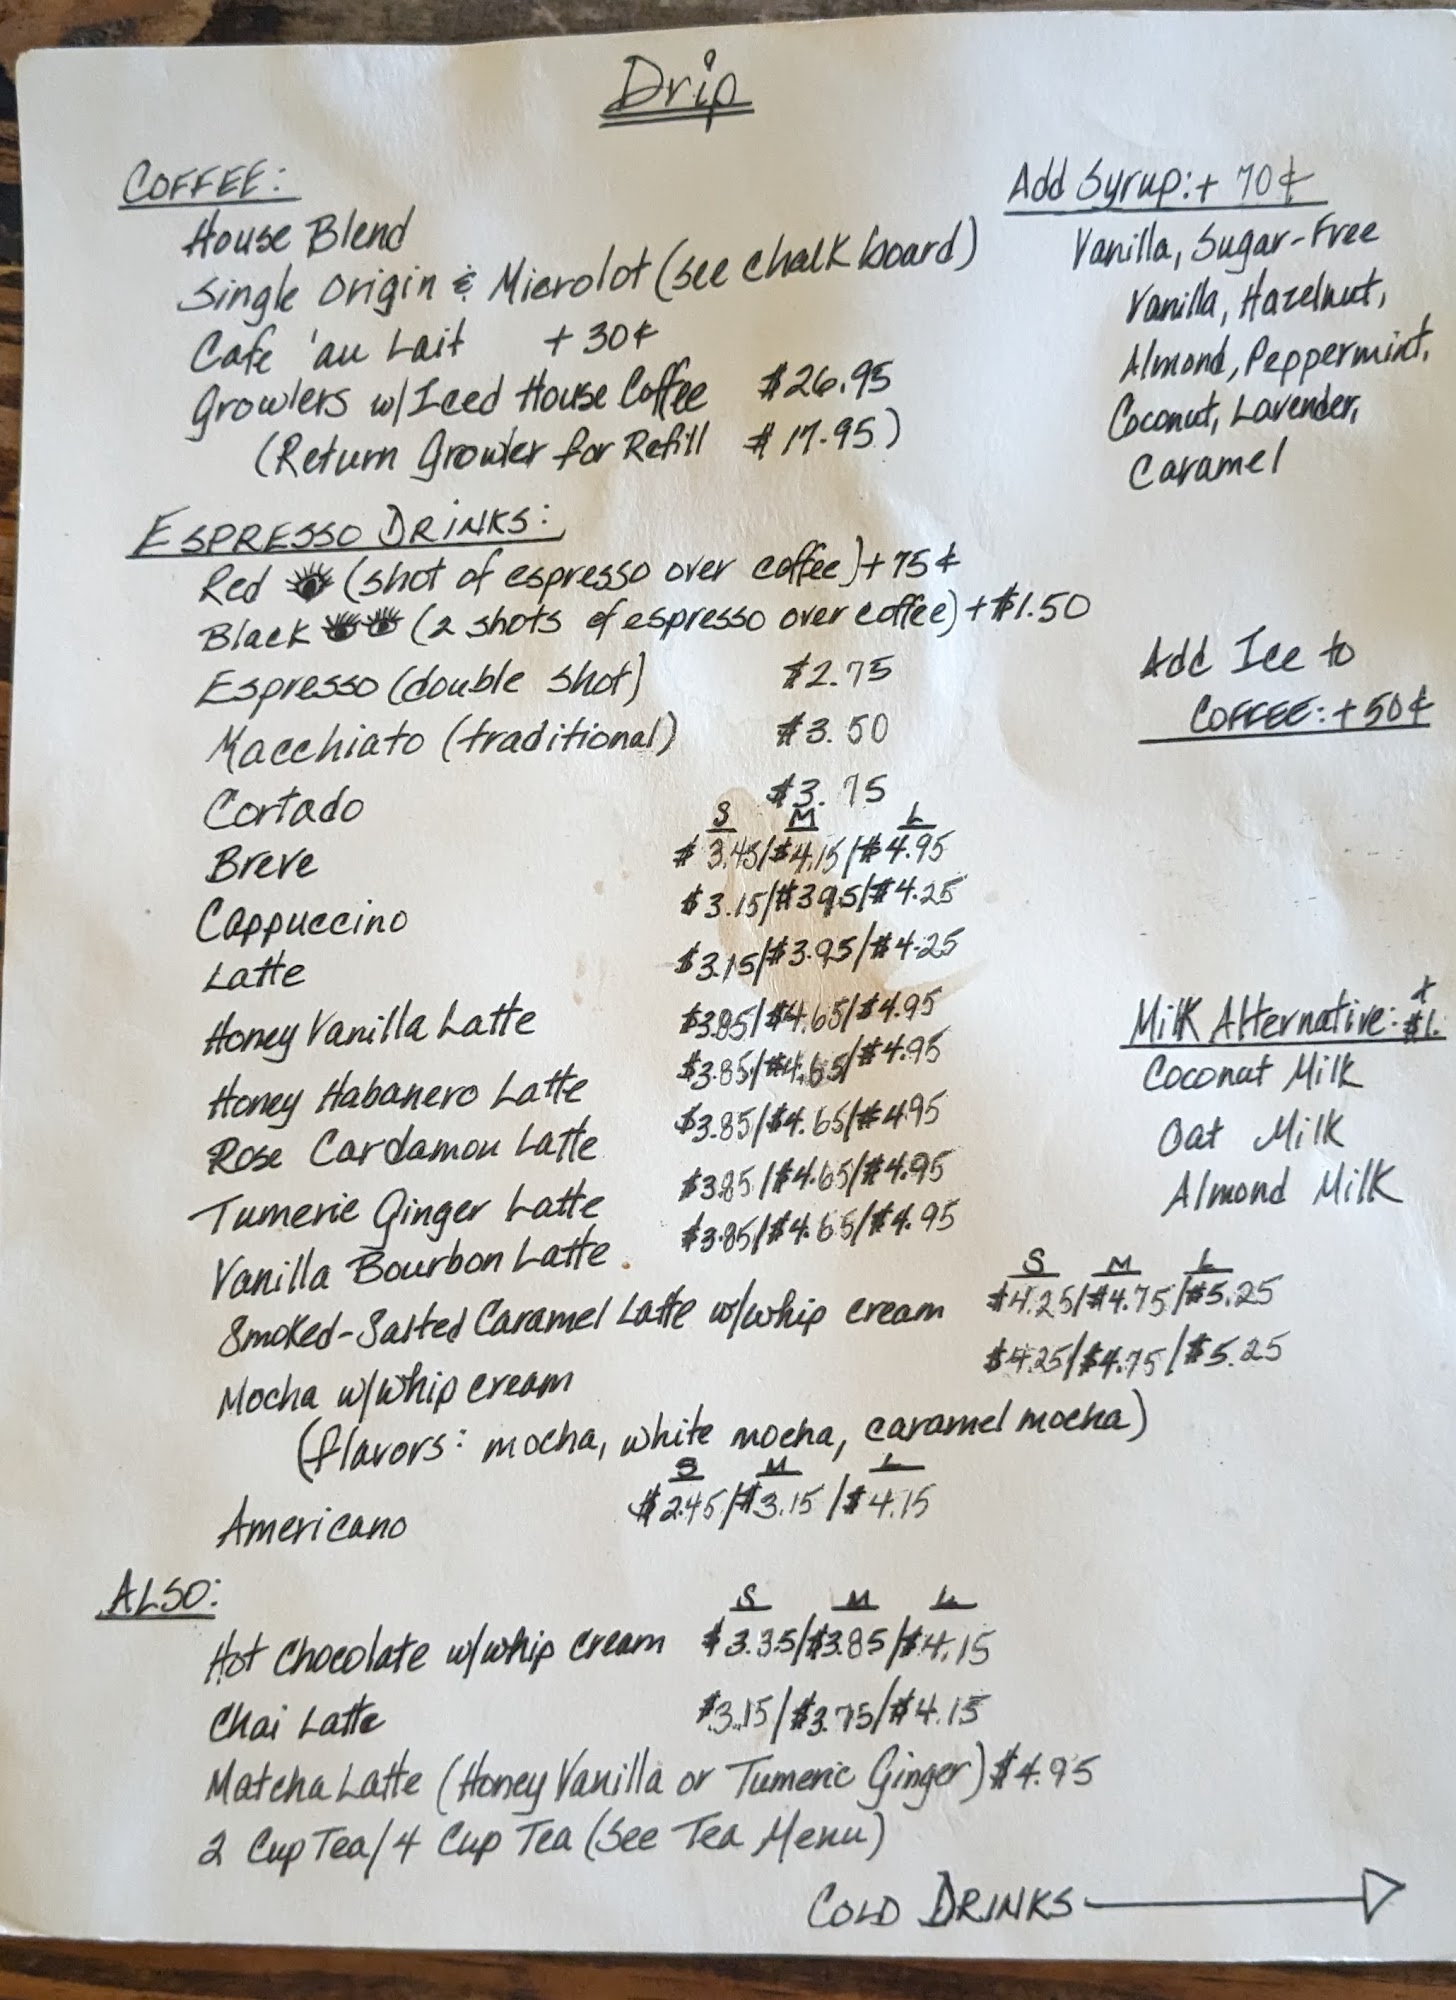 Drip
COFFEE:
House Blend
Single Origin & Microlot (see chalk board)
Cafe 'au Lait + 30¢
Growlers w/ Iced House Coffee $26.95
(Return Growler for Refill $17.95)
Add Syrup: + 70¢
Vanilla, Sugar-Free
Vanilla, Hazelnut,
Almond, Peppermint,
Coconut, Lavender,
Caramel
ESPRESSO DRINKS:
Red (shot of espresso over coffee) + 75¢
Black (2 shots of espresso over coffee) + $1.50
Espresso (double shot) $2.75
Macchiato (traditional) $3.50
Cortado $3.75
S M L
Breve $3.45/$4.15/$4.95
Cappuccino $3.15/$3.95/$4.25
Latte $3.15/$3.95/$4.25
Honey Vanilla Latte $3.85/$4.65/$4.95
Honey Habanero Latte $3.85/$4.65/$4.95
Rose Cardamon Latte $3.85/$4.65/$4.95
Tumeric Ginger Latte $3.85/$4.65/$4.95
Vanilla Bourbon Latte $3.85/$4.65/$4.95
S M L
Smoked-Salted Caramel Latte w/whip cream $4.25/$4.75/$5.25
Mocha w/whip cream $4.25/$4.75/$5.25
(flavors: mocha, white mocha, caramel mocha)
S M L
Americano $2.45/$3.15/$4.15
Add Ice to
COFFEE: + 50¢
Milk Alternative: + $1.
Coconut Milk
Oat Milk
Almond Milk
ALSO:
S M L
Hot Chocolate w/whip cream $3.35/$3.85/$4.15
Chai Latte $3.15/$3.75/$4.15
Matcha Latte (Honey Vanilla or Tumeric Ginger) $4.95
2 Cup Tea/4 Cup Tea (See Tea Menu)
COLD DRINKS